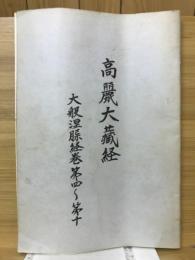 高麗大藏経
大般涅槃経卷第四〜第十